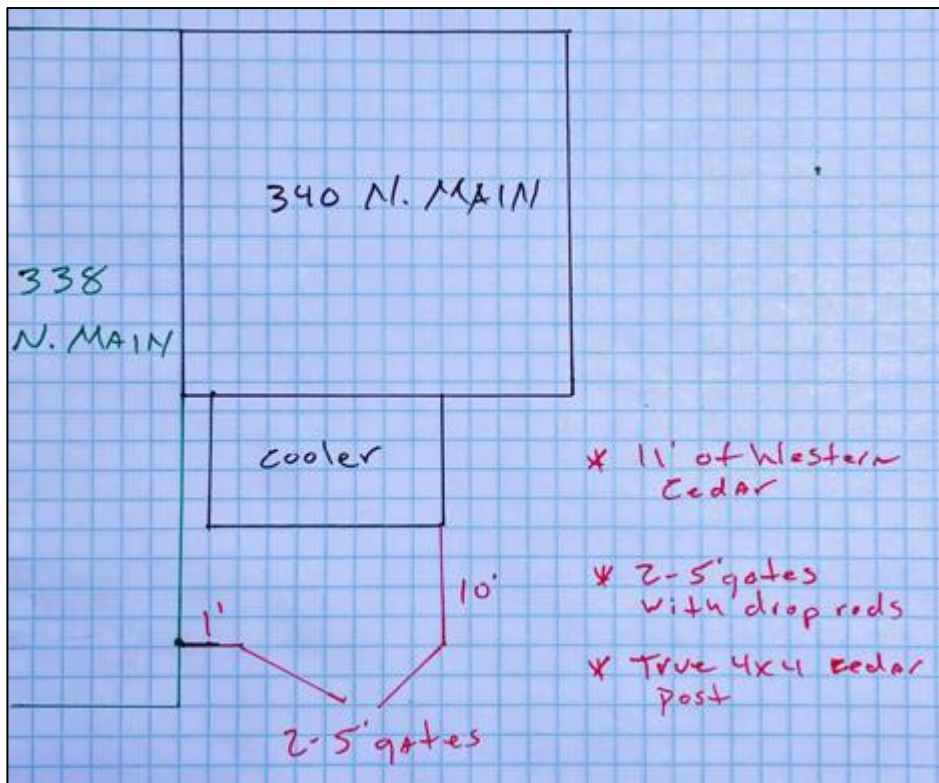 340 N. MAIN
338
N. MAIN
cooler
* 11' of Western
Cedar
10'
* 2-5' gates
with drop rods
1'
* True 4x4 cedar
post
2-5' gates